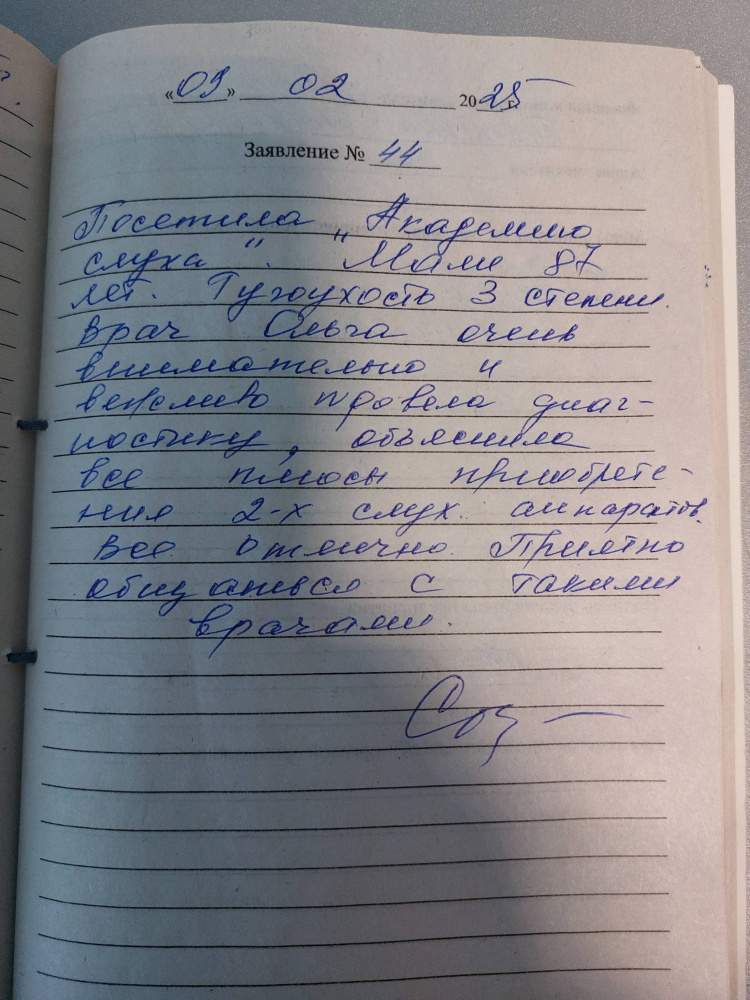 «09» 02 2025 г.
Заявление № 44
Посетила „Академию
слуха“. Маме 87
лет. Тугоухость 3 степени.
Врач Ольга очень
внимательно и
вежливо провела диаг-
ностику, объяснила
все плюсы приобрете-
ния 2-х слух. аппаратов.
Все отлично. Приятно
общаться с такими
врачами.